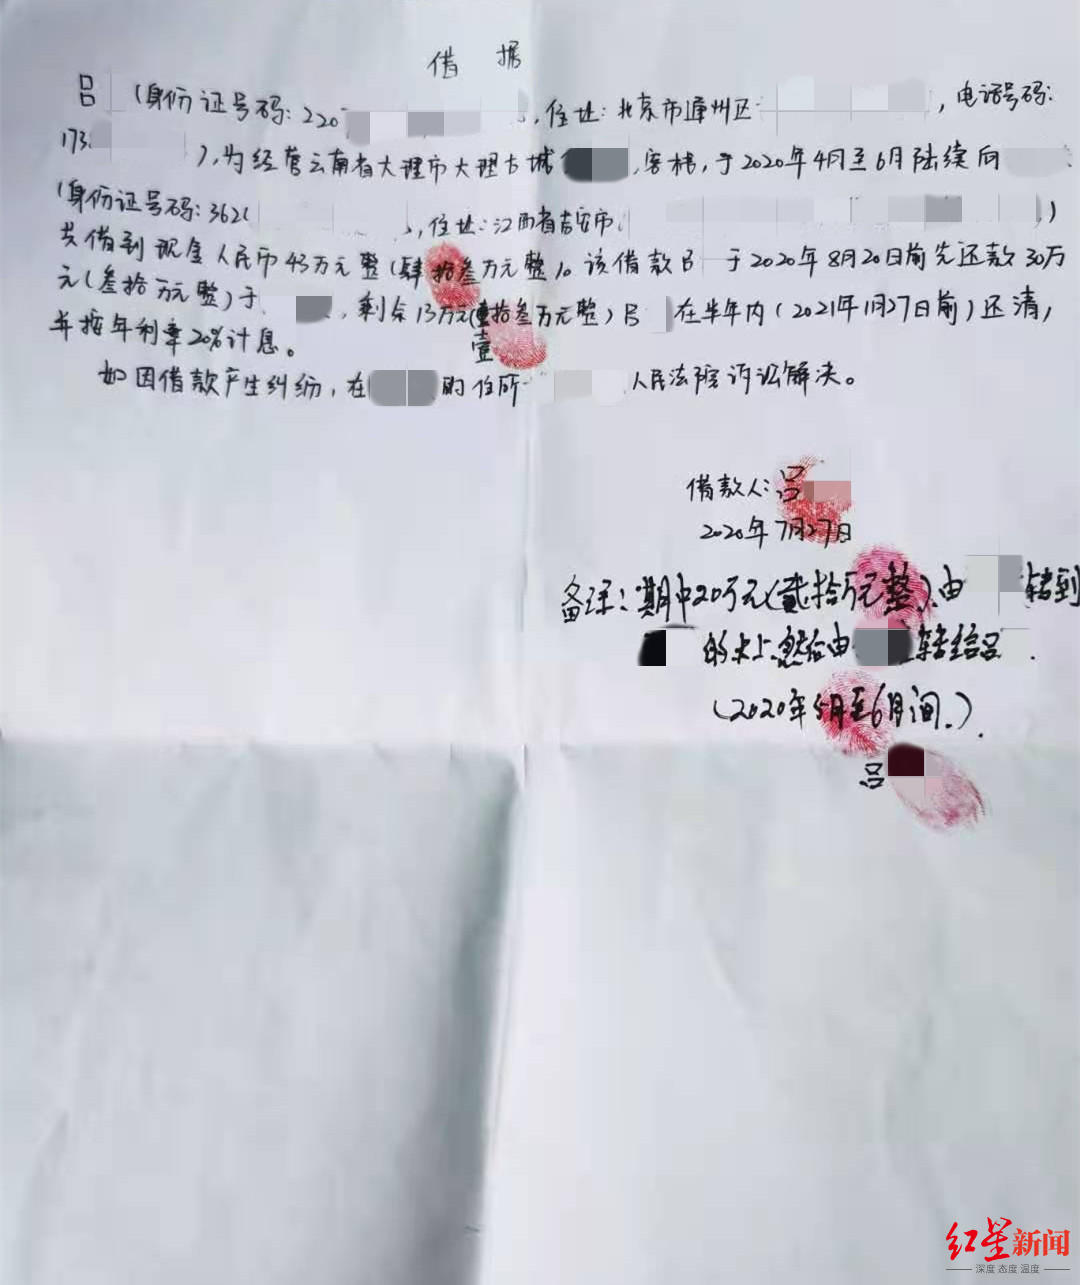 借 据
吕 (身份证号码: 220 , 住址: 北京市通州区 , 电话号码:
173 ), 为经营云南省大理市大理古城 客栈, 于2020年4月至6月陆续向
(身份证号码: 362 , 住址: 江西省吉安市 )
共借到现金人民币43万元整(肆拾叁万元整)。该借款吕 于2020年8月20日前先还款30万
元(叁拾万元整)于 , 剩余13万元(壹拾叁万元整)吕 在半年内(2021年1月27日前)还清,
壹
并按年利率20%计息。
如因借款产生纠纷, 在 的住所 人民法院诉讼解决。
借款人: 吕
2020年7月27日
备注: 期中20万元(贰拾万元整)由 转到
的卡上.然后由 转给吕 .
(2020年5月至6月间.).
吕
红星新闻
深度 态度 温度